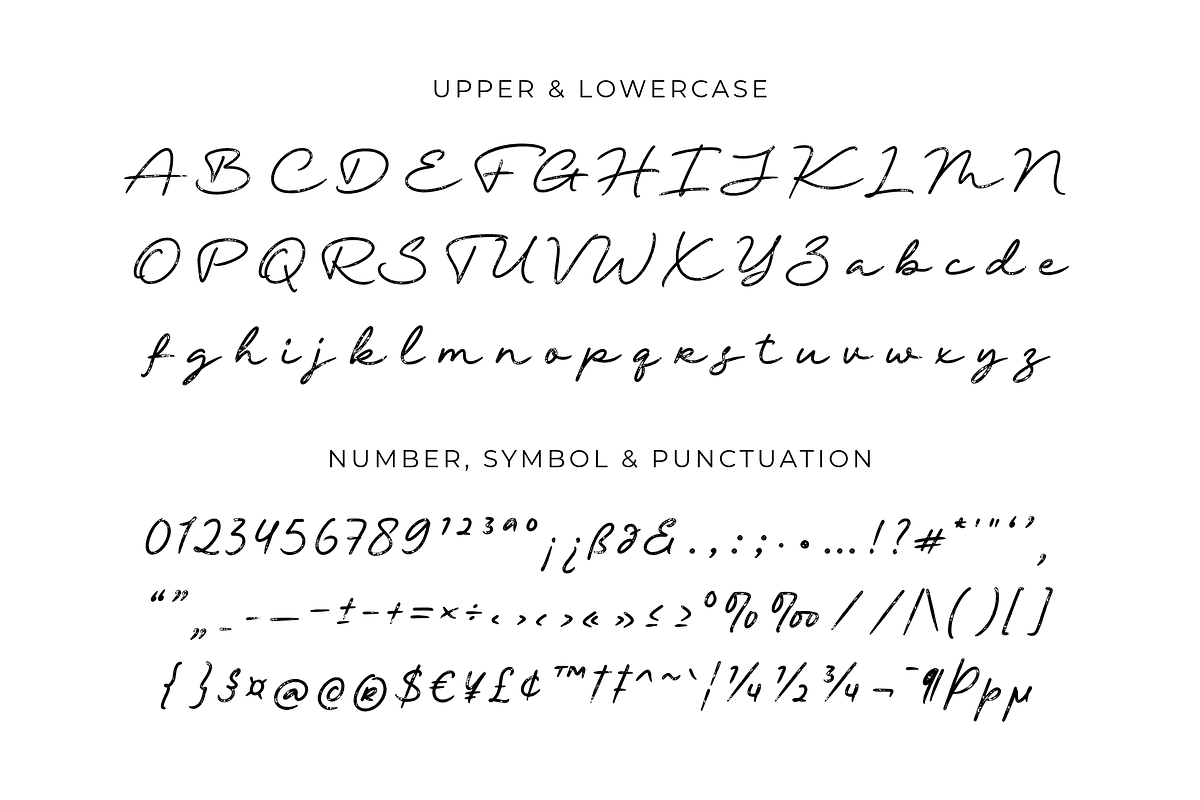 UPPER & LOWERCASE
A B C D E F G H I J K L M N
O P Q R S T U V W X Y Z a b c d e
f g h i j k l m n o p q r s t u v w x y z
NUMBER, SYMBOL & PUNCTUATION
0 1 2 3 4 5 6 7 8 9 ¹ ² ³ ª º ¡ ¿ ß ∂ & . , : ; · • … ! ? # * ' " ‘ ’ ‚
“ ” „ _ - — – ± − + = × ÷ ‹ › < > « » ≤ ≥ ° % ‰ / ⁄ | \ ( ) [ ]
{ } § ¤ @ © ® $ € ¥ £ ¢ ™ † ‡ ^ ~ ` ¦ ¼ ½ ¾ ¬ ¯ ¶ Þ þ µ